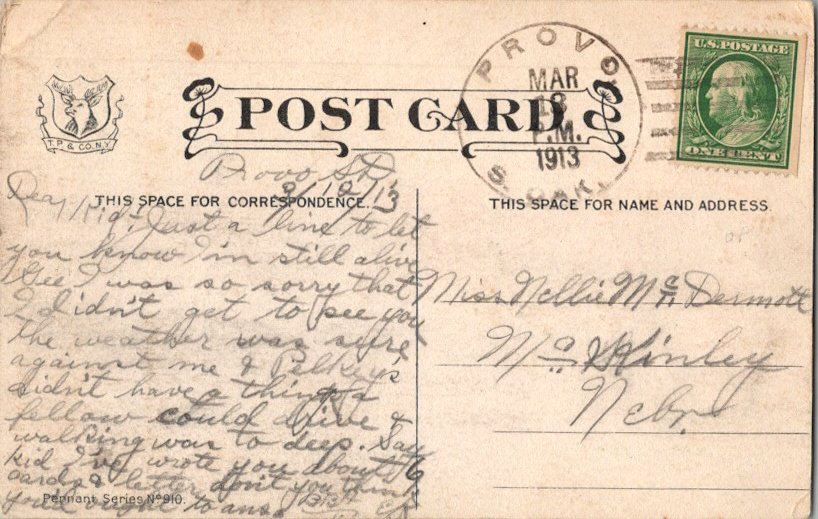 U.S. POSTAGE
ONE CENT
PROVO,
MAR
P.M.
1913
S. DAK.
T.P. & CO. N.Y.
POST CARD
Provo SD
THIS SPACE FOR CORRESPONDENCE.
THIS SPACE FOR NAME AND ADDRESS.
Dear Kid. Just a line to let
you know I'm still alive
Gee I was so sorry that
I didn't get to see you
the weather was sure
against me &
didn't have a thing a
fellow could drive &
walking was to deep. Say
kid I've wrote you about 6
cards & letter don't you think
you'd ought to ans.
Pennant Series No 910.
Miss Nellie McDermott
McKinley
Nebr